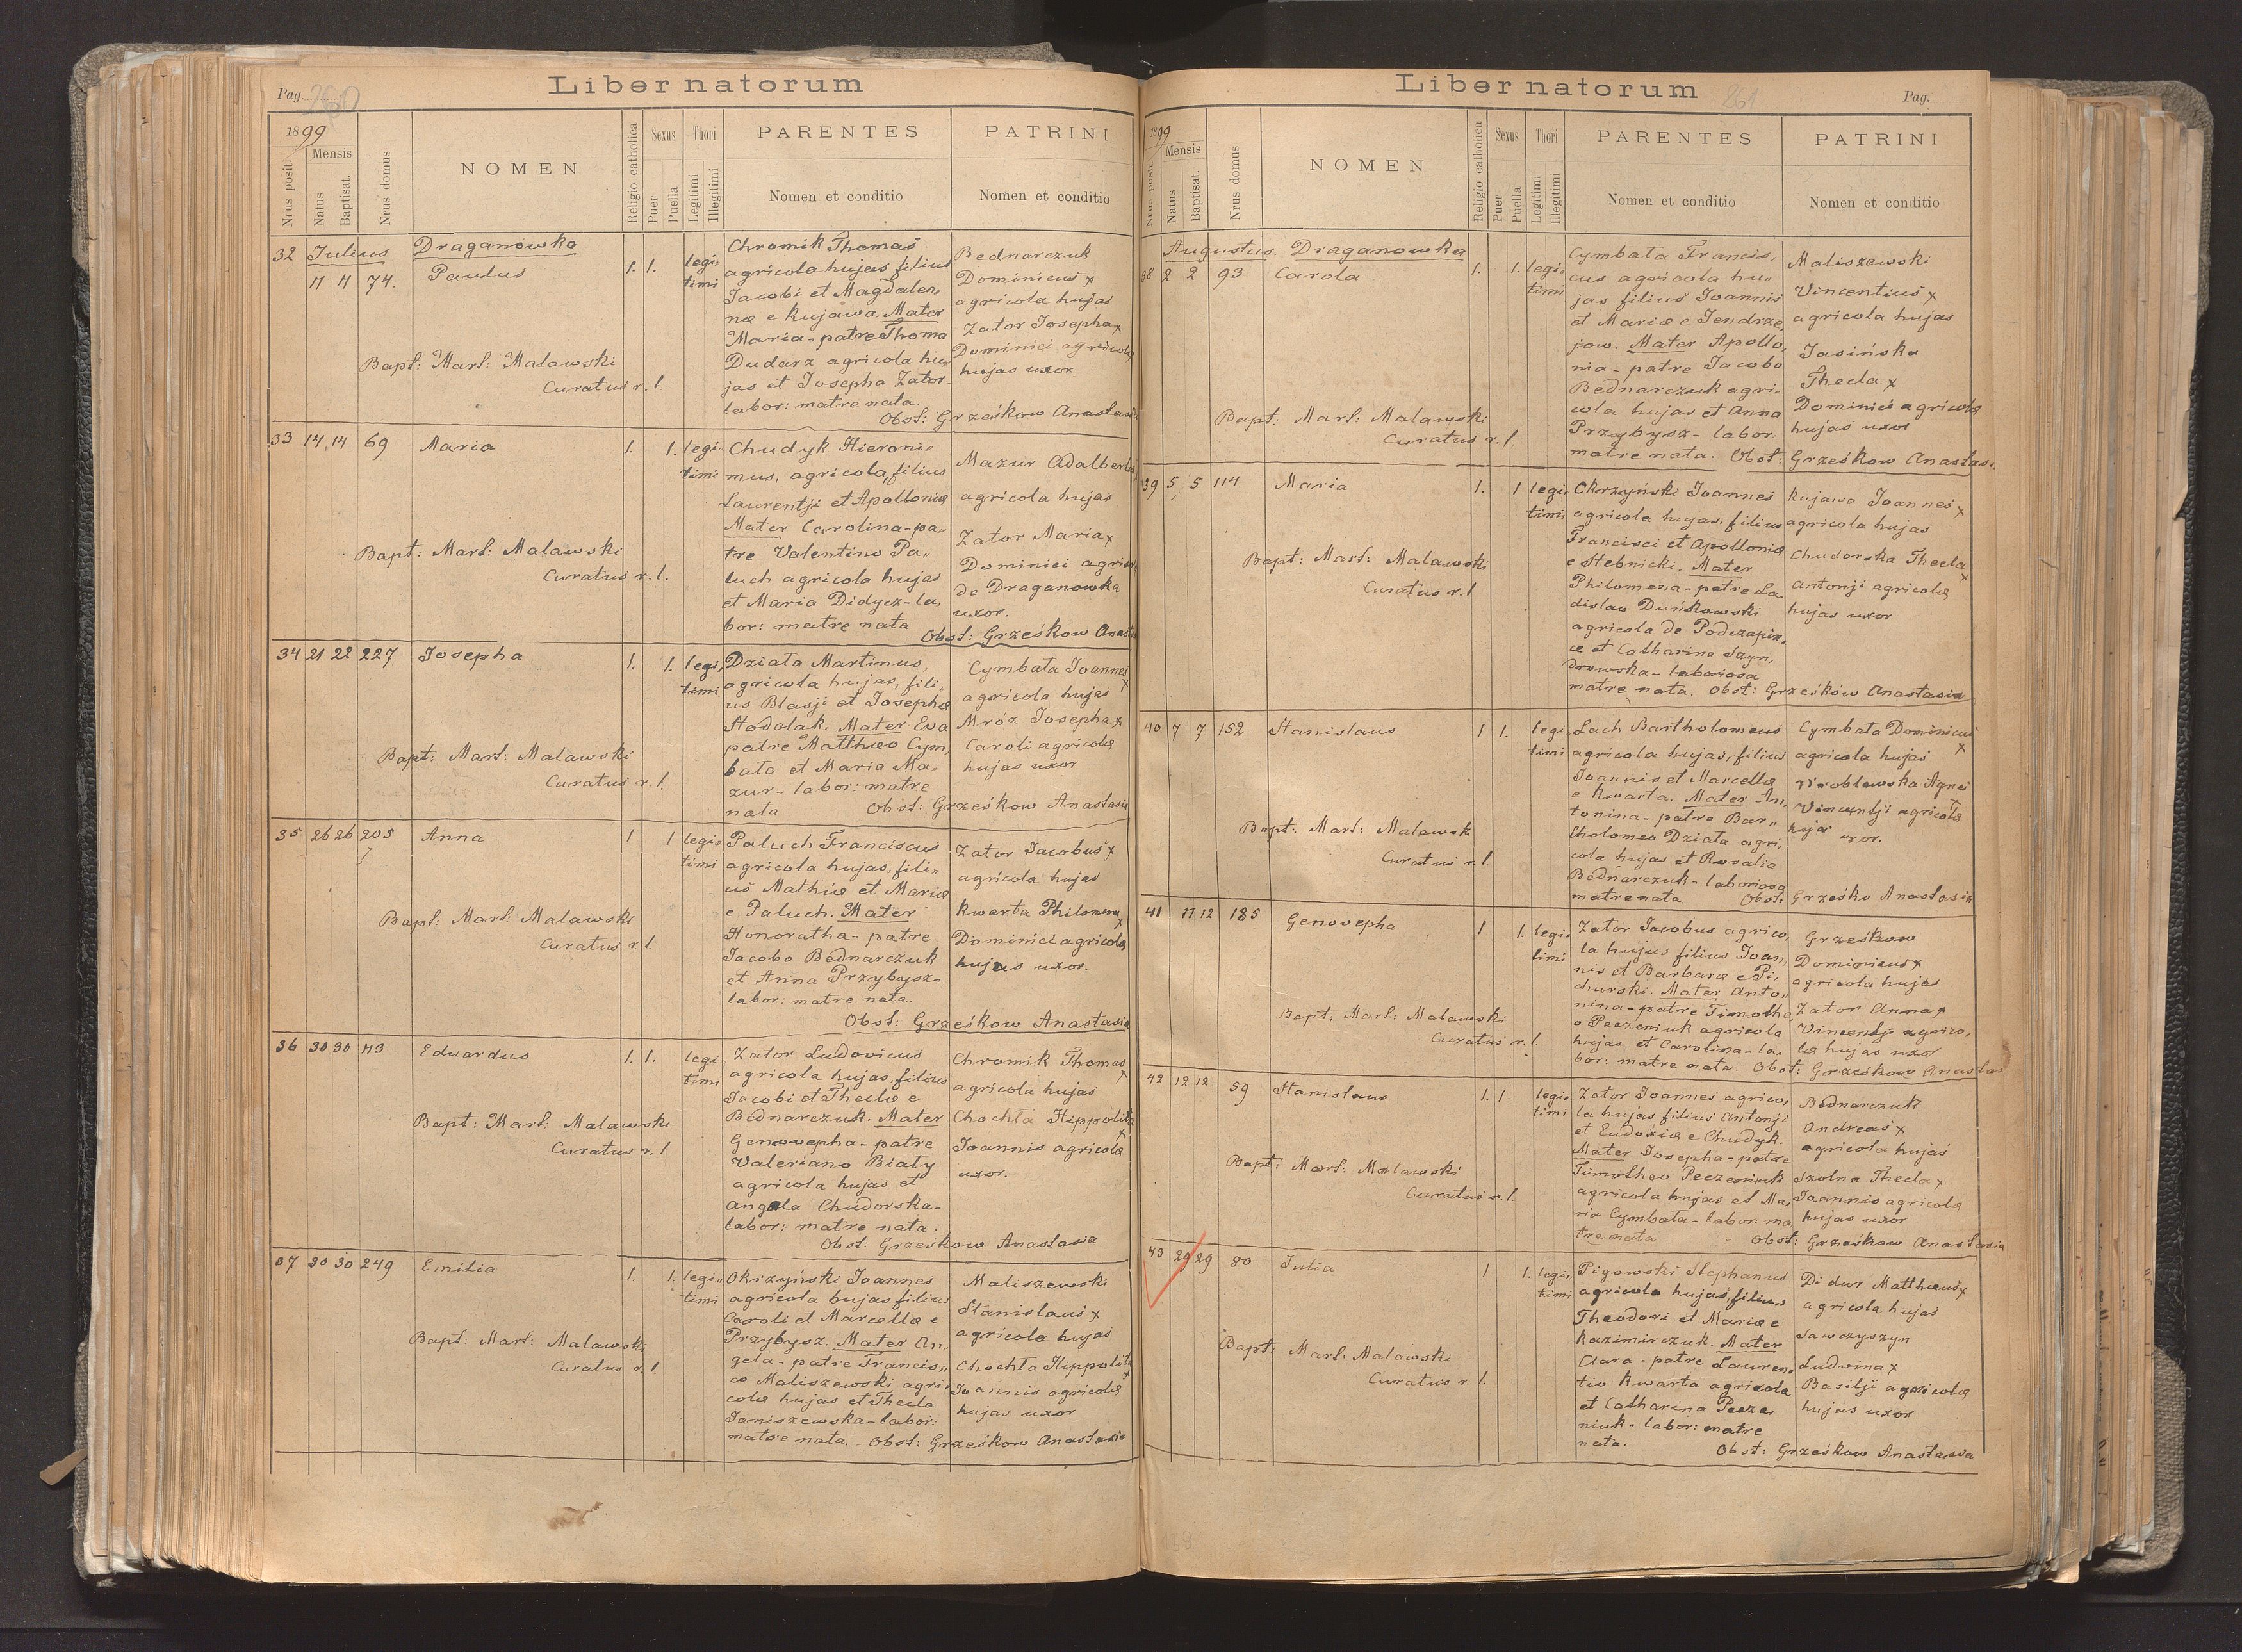 Liber natorum
Pag. 260
1899
Mensis
Nrus posit.
Natus
Baptisat.
Nrus domus
NOMEN
Religio catholica
Sexus
Puer
Puella
Thori
Legitimi
Illegitimi
PARENTES
Nomen et conditio
PATRINI
Nomen et conditio
32 Iulius Draganowka
11 11 74. Paulus 1. 1. legi„
timi
Chromik Thomas
agricola hujas filius
Jacobi et Magdale„
næ e Kujawa. Mater
Maria - patre Thoma
Dudarz agricola hu„
jas et Josepha Zator-
labor: matre nata.
Bednarczuk
Dominicus x
agricola hujas
Zator Josepha x
Dominici agricolæ
hujas uxor.
Bapt: Mart: Malawski
Curatus r. l.
Obst: Grześkow Anastasia
33 14, 14 69 Maria 1. 1. legi„
timi
Chudyk Hieroni„
mus, agricola, filius
Laurentji et Apolloniæ
Mater Carolina - pa„
tre Valentino Pa„
luch agricola hujas
et Maria Didycz - la„
bor: matre nata
Mazur Adalbertus
agricola hujas
Zator Maria x
Dominici agricolæ
de Draganowka
uxor.
Bapt: Mart: Malawski
Curatus r. l.
Obst: Grześkow Anasta
34 21 22 227 Josepha 1. 1. legi„
timi
Działa Martinus,
agricola hujas, fili„
us Blasji et Josephæ
Stodolak. Mater Eva
patre Matthæo Cym„
bała et Maria Ma„
zur - labor: matre
nata
Cymbała Joannes
x
agricola hujas
Mróz Josepha x
Caroli agricolæ
hujas uxor
Bapt: Mart: Malawski
Curatus r. l.
Obst: Grześkow Anastasia
35 26 26 205 Anna 1 1 legi„
timi
Paluch Franciscus
agricola hujas, fili„
us Mathiæ et Mariæ
e Paluch. Mater
Honoratha - patre
Jacobo Bednarczuk
et Anna Przybysz-
labor: matre nata.
Zator Jacobus x
agricola hujas
Kwarta Philomena
x
Dominici agricolæ
hujas uxor.
Bapt: Mart: Malawski
Curatus r. l.
Obst: Grześkow Anastasia
36 30 30 113 Eduardus 1. 1. legi„
timi
Zator Ludovicus
agricola hujas, filius
Jacobi et Theclæ e
Bednarczuk. Mater
Genovepha - patre
Valeriano Biały
agricola hujas et
Angela Chudorska-
labor: matre nata.
Chromik Thomas
x
agricola hujas
Chochła Hippolita
x
Joannis agricolæ
uxor.
Bapt: Mart: Malawski
Curatus r. l
Obst: Grześkow Anastasia
37 30 30 249 Emilia 1. 1. legi„
timi
Okrzyński Joannes
agricola hujas filius
Caroli et Marcellæ e
Przybysz. Mater An„
gela - patre Francis„
co Maliszewski agri„
cola hujas et Thecla
Janiszewska - labor:
matre nata.
Maliszewski
Stanislaus x
agricola hujas
Chochła Hippolita
x
Joannis agricolæ
hujas uxor
Bapt: Mart: Malawski
Curatus r. l
Obst: Grześkow Anastasia
Liber natorum
261
Pag.
1899
Mensis
Nrus posit.
Natus
Baptisat.
Nrus domus
NOMEN
Religio catholica
Sexus
Puer
Puella
Thori
Legitimi
Illegitimi
PARENTES
Nomen et conditio
PATRINI
Nomen et conditio
Augustus. Draganowka
38 2 2 93 Carola 1. 1. legi„
timi
Cymbała Francis„
cus agricola hu„
jas filius Joannis
et Mariæ e Jendrze„
jow. Mater Apollo„
nia - patre Jacobo
Bednarczuk agri„
cola hujas et Anna
Przybysz - labor.
matre nata.
Maliszewski
Vincentius x
agricola hujas
Jasińska
Thecla x
Dominici agricolæ
hujas uxor
Bapt: Mart: Malawski
Curatus r. l.
Obst: Grześkow Anastasi
39 5, 5 114 Maria 1. 1 legi„
timi
Okrzyński Joannes
agricola hujas. filius
Francisci et Apolloniæ
e Stebnicki. Mater
Philomena - patre La„
dislao Duńkowski
agricola de
et Catharina
- laboriosa
matre nata.
Kujawa Joannes
x
agricola hujas
Chudorska Thecla
x
Antonji agricolæ
hujas uxor
Bapt: Mart: Malawski
Curatus r. l
Obst: Grześków Anastasia
40 7 7 152 Stanislaus 1 1. legi„
timi
Lach Bartholomeus
agricola hujas, filius
Joannis et Marcellæ
e Kwarta. Mater An„
tonina - patre Bar„
tholomeo Działa agri„
cola hujas et Rosalia
Bednarczuk - laboriosa
matre nata.
Cymbała Dominicus
x
agricola hujas
Wroblewska Agnes
x
Vincentji agricolæ
hujas uxor.
Bapt: Mart: Malawsk
Curatus r. l.
Obst: Grześko Anastasia
41 11 12 185 Genovepha 1 1. legi„
timi
Zator Jacobus agrico„
la hujus filius Joan„
nis et Barbaræ e Pi„
churski. Mater Anto„
nina - patre Timothe„
o Peczeniuk agricola
hujas et Carolina - la„
bor: matre nata.
Grześkow
Dominicus x
agricola hujas
Zator Anna x
Vincentji agrico„
læ hujas uxor
Bapt: Mart: Malawski
Curatus r. l.
Obst: Grześkow Anastas
42 12 12 59 Stanislaus 1. 1 legi„
timi
Zator Joannes agrico„
la hujas filius Antonji
et Eudoxiæ e Chudyk.
Mater Josepha - patre
Timotheo Peczeniuk
agricola hujas et Ma„
ria Cymbała - labor: ma
tre nata
Bednarczuk
Andreas x
agricola hujas
Szolna Thecla x
Joannis agricolæ
hujas uxor
Bapt: Mart: Malawski
Curatus r. l.
Obst: Grześkow Anastasia
43 29 29 80 Julia 1 1. legi„
timi
Pigowski Stephanus
agricola hujas, filius
Theodori et Mariæ e
Kazimirczuk. Mater
Clara - patre Lauren„
tio Kwarta agricola
et Catharina Pecze„
niuk - labor: matre
nata.
Didur Matthæus x
agricola hujas
Sawczyszyn
Ludvina x
Basilji agricolæ
hujas uxor
Bapt: Mart: Malawski
Curatus r. l.
Obst: Grześkow Anastasia